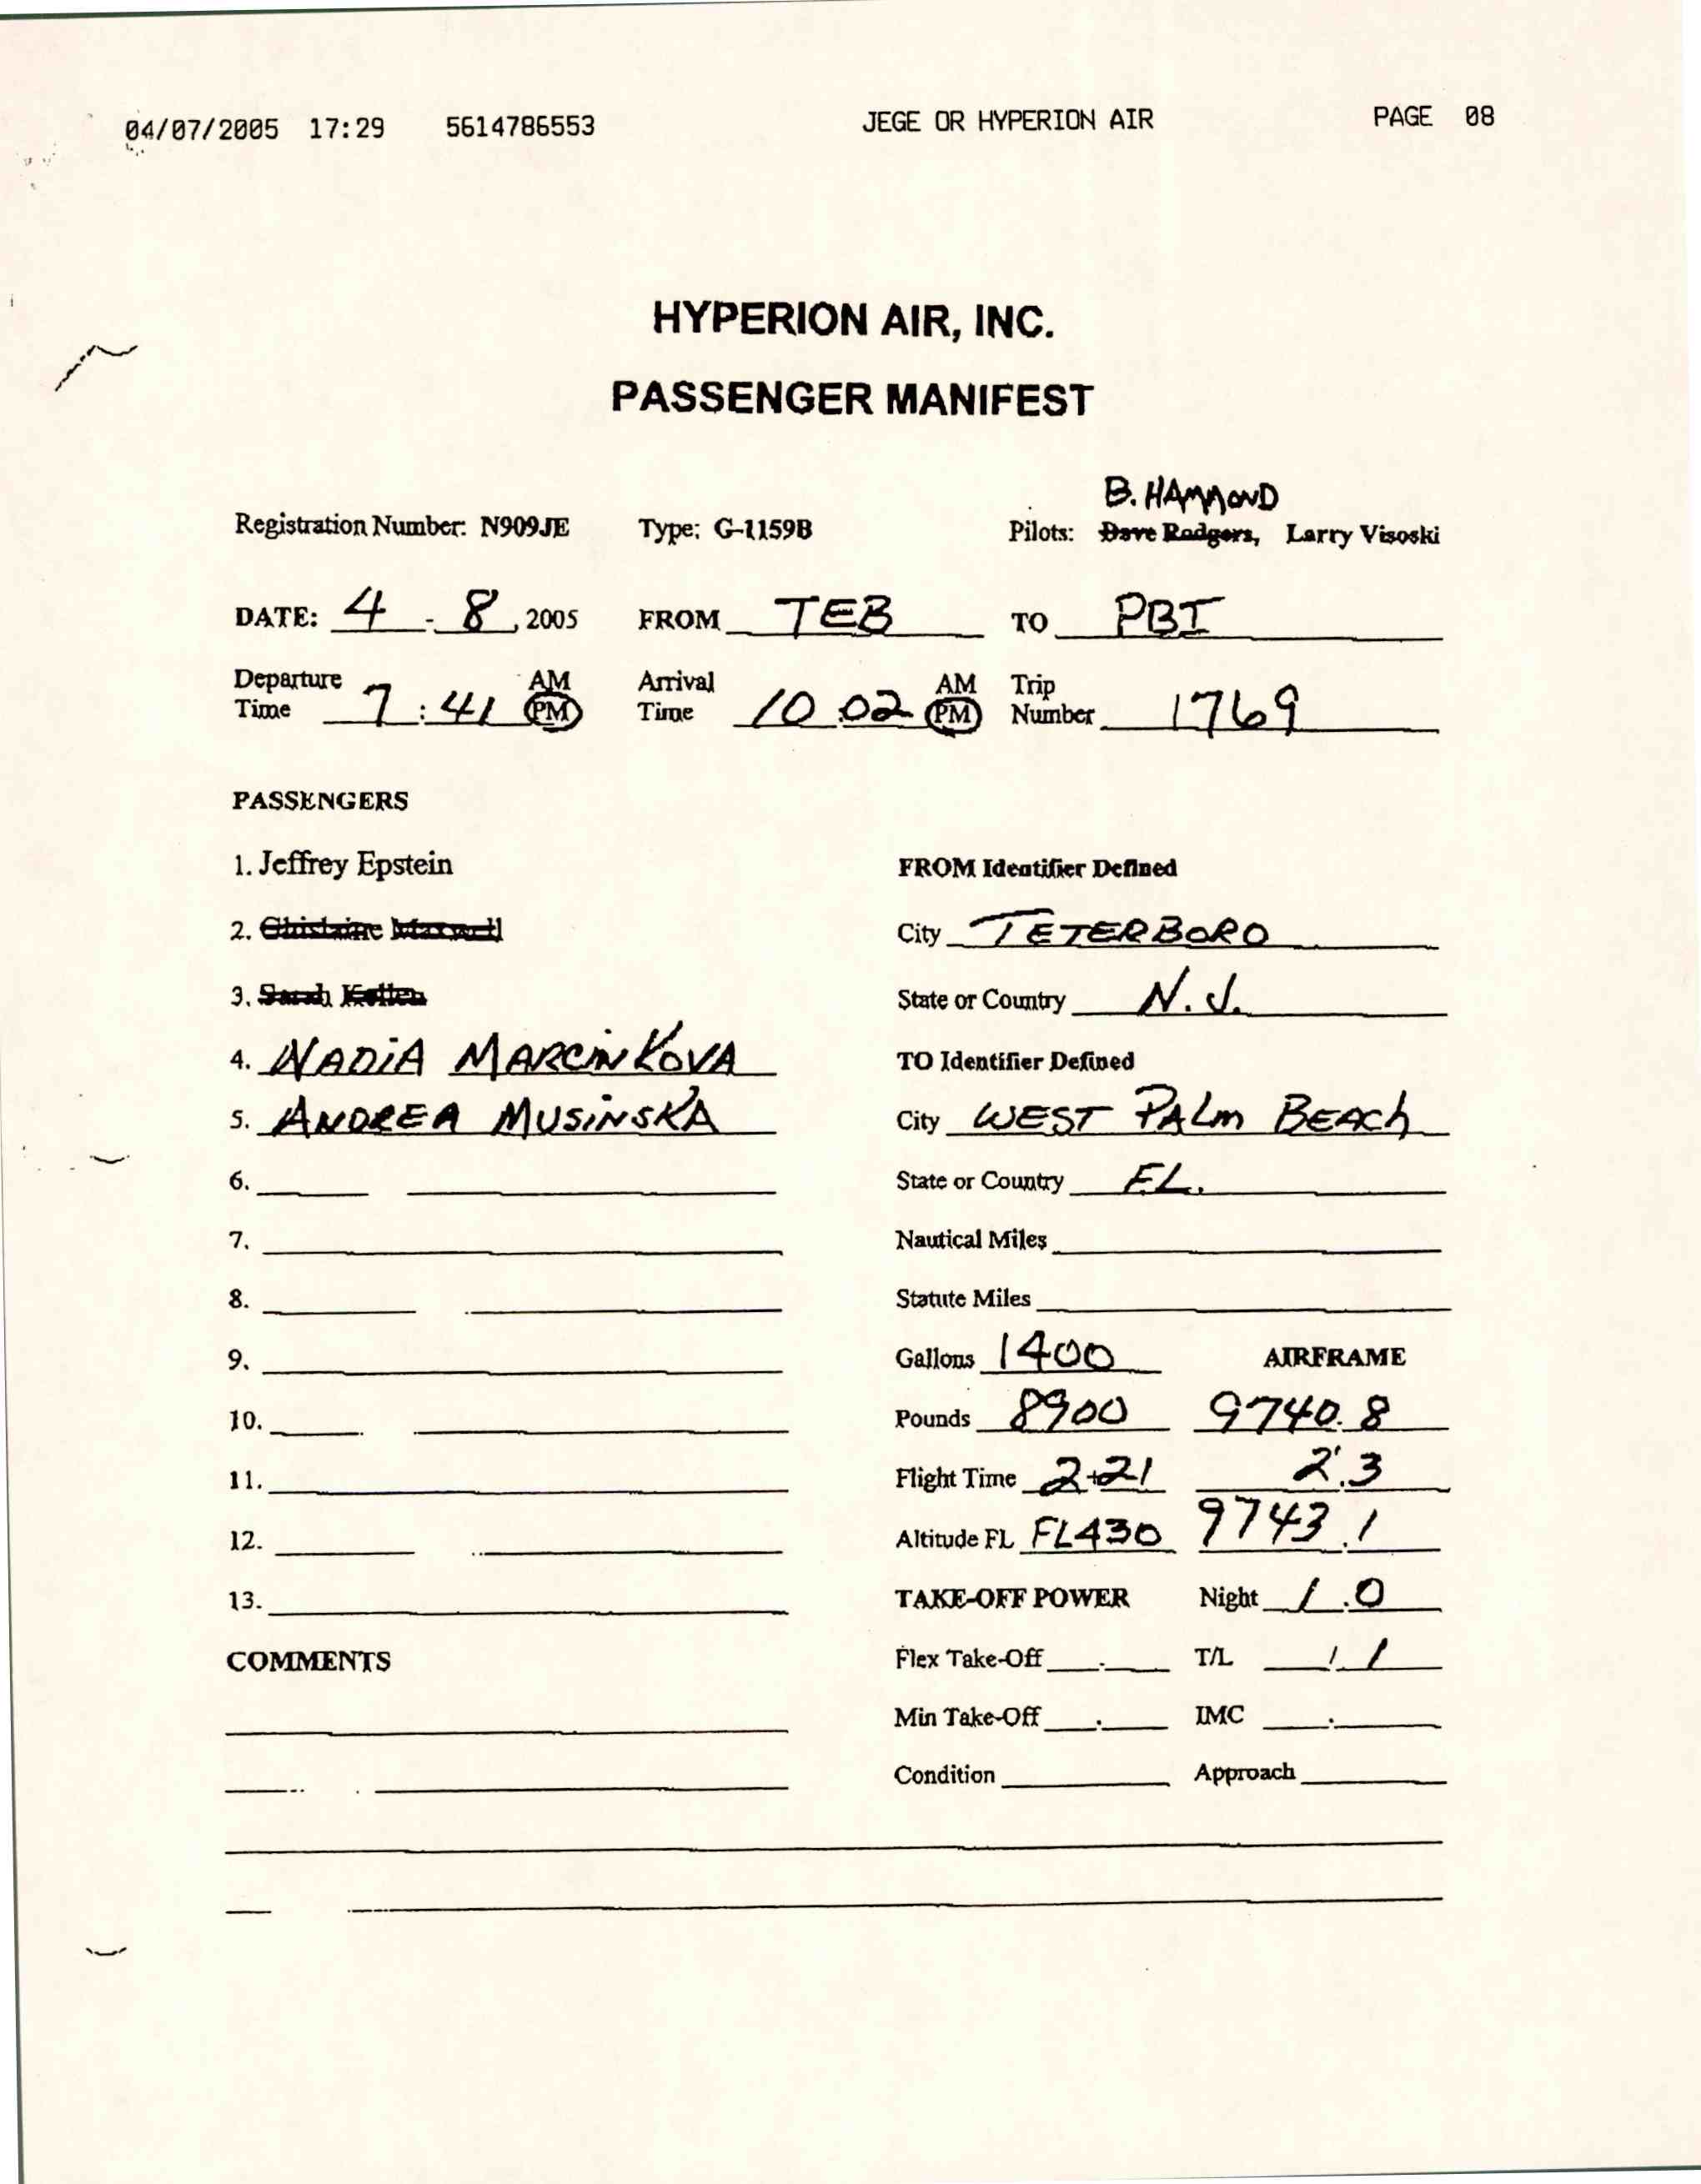 04/07/2005 17:29 5614786553 JEGE OR HYPERION AIR PAGE 08
HYPERION AIR, INC.
PASSENGER MANIFEST
B. HAMMOND
Registration Number: N909JE Type: G-1159B Pilots: Dave Rodgers, Larry Visoski
DATE: 4 - 8, 2005 FROM TEB TO PBI
Departure Time 7:41 AM PM Arrival Time 10:02 AM PM Trip Number 1769
PASSENGERS
1. Jeffrey Epstein FROM Identifier Defined
2. Ghislaine Maxwell City TETERBORO
3. Sarah Kellen State or Country N.J.
4. NADIA MARCINKOVA TO Identifier Defined
5. ANDREA MUSINSKA City WEST PALM BEACH
6. State or Country FL.
7. Nautical Miles
8. Statute Miles
9. Gallons 1400 AIRFRAME
10. Pounds 8900 9740.8
11. Flight Time 2+21 2.3
12. Altitude FL FL430 9743.1
13. TAKE-OFF POWER Night 1.0
COMMENTS Flex Take-Off . T/L 1/1
Min Take-Off . IMC .
Condition Approach